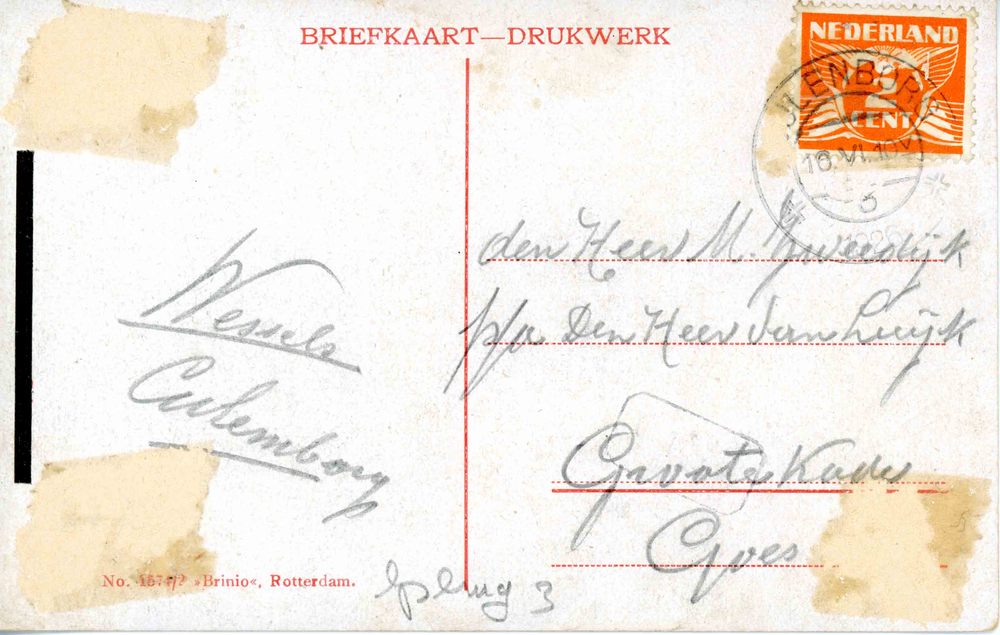 BRIEFKAART—DRUKWERK
NEDERLAND
2
CENT
CULENBORG
16.VI.10V
6
Wessels
Culemborg
den Heer M. Zweedijk
p/a Den Heer van Luijk
Groote Kade
Goes
No. 1574/2 »Brinio«, Rotterdam.
3